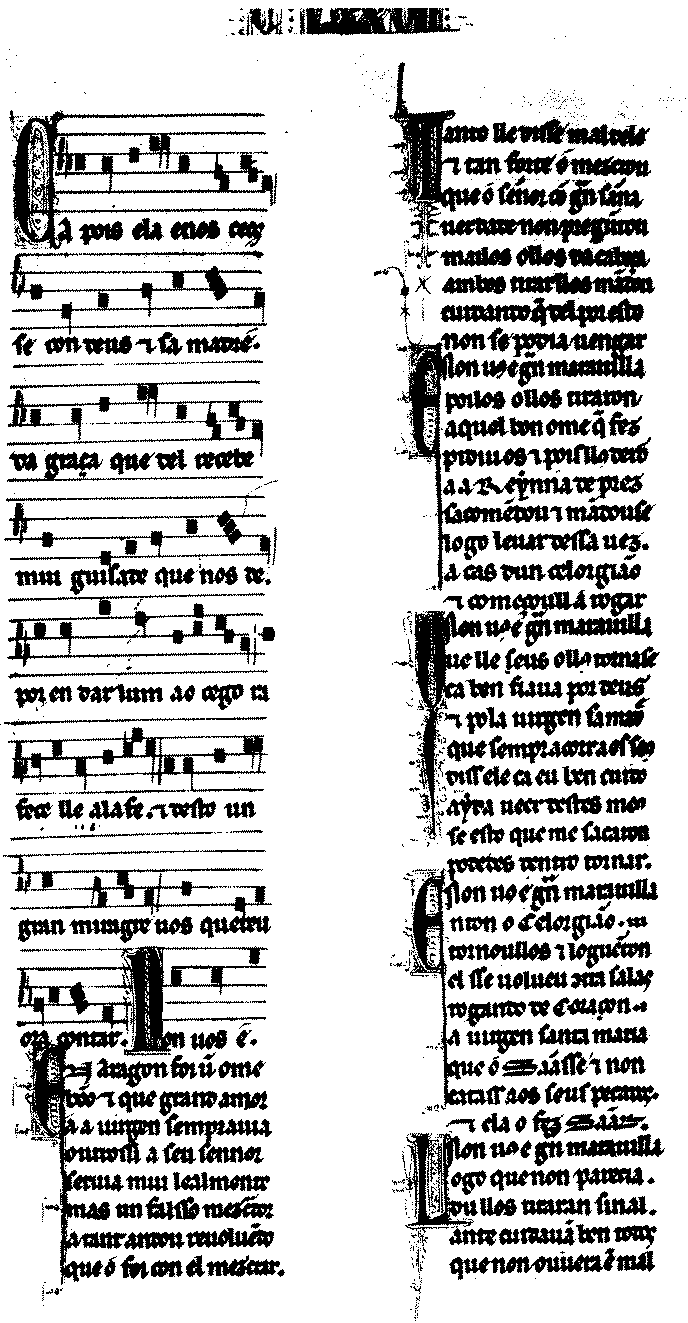 Ca pois ela enos ceos
se con deus ⁊ sa madre.
da graça que del recebe
mui guisade que nos de.
poren dar lum ao cego ra
fece lle ala fe. ⁊ desto un
gran miragre uos querreu
ora contar. Non uos é.
En Aragon foi ũ ome
bõo ⁊ que grand amor
a a uirgen sempr auia
outrossi a seu sennor
seruia mui lealmente
mas un falsso mezcror
a tant andou reuoluẽdo
que ó foi con el mezcrar.
Tanto lle disse mal dele
⁊ tan forte ó mezcrou
que ó señor cõ gñ saña
uerdade non preguntou
mailos ollos da cabeça
ambos tirarllos mãdou
cuidando q̃ del por esto
non se podia uengar
Non uos é gñ marauilla
Poilos ollos tiraron
aquel bon ome q̃ fez
pidiu os ⁊ pois llos derõ
a a Reynna de prez
sacomẽdou ⁊ mãdouse
logo leuar dessa uez.
a cas dun celorgião
⁊ começoull á rogar
Non uos é gñ marauilla
Que lle seus ollos tornasse
ca ben fiaua por deus
⁊ pola uirgen sa madre
que sempr acorra os seus
diss ele ca eu ben cuido
ayna ueer destes meos
se esto que me sacaron
podedes dentro tornar.
Non uos é gñ marauilla
Enton o Celorgião
tornoullos ⁊ logu enton
el sse uolueu
rogando de Coraçon
a uirgen santa maria
que ó saasse ⁊ non
catass aos seus pecados.
⁊ ela o fez saar.
Non uos é gñ marauilla
Logo que non parecia.
du llos tiraran sinal.
ante cuidauã ben todos
que non ouuera ẽ mal